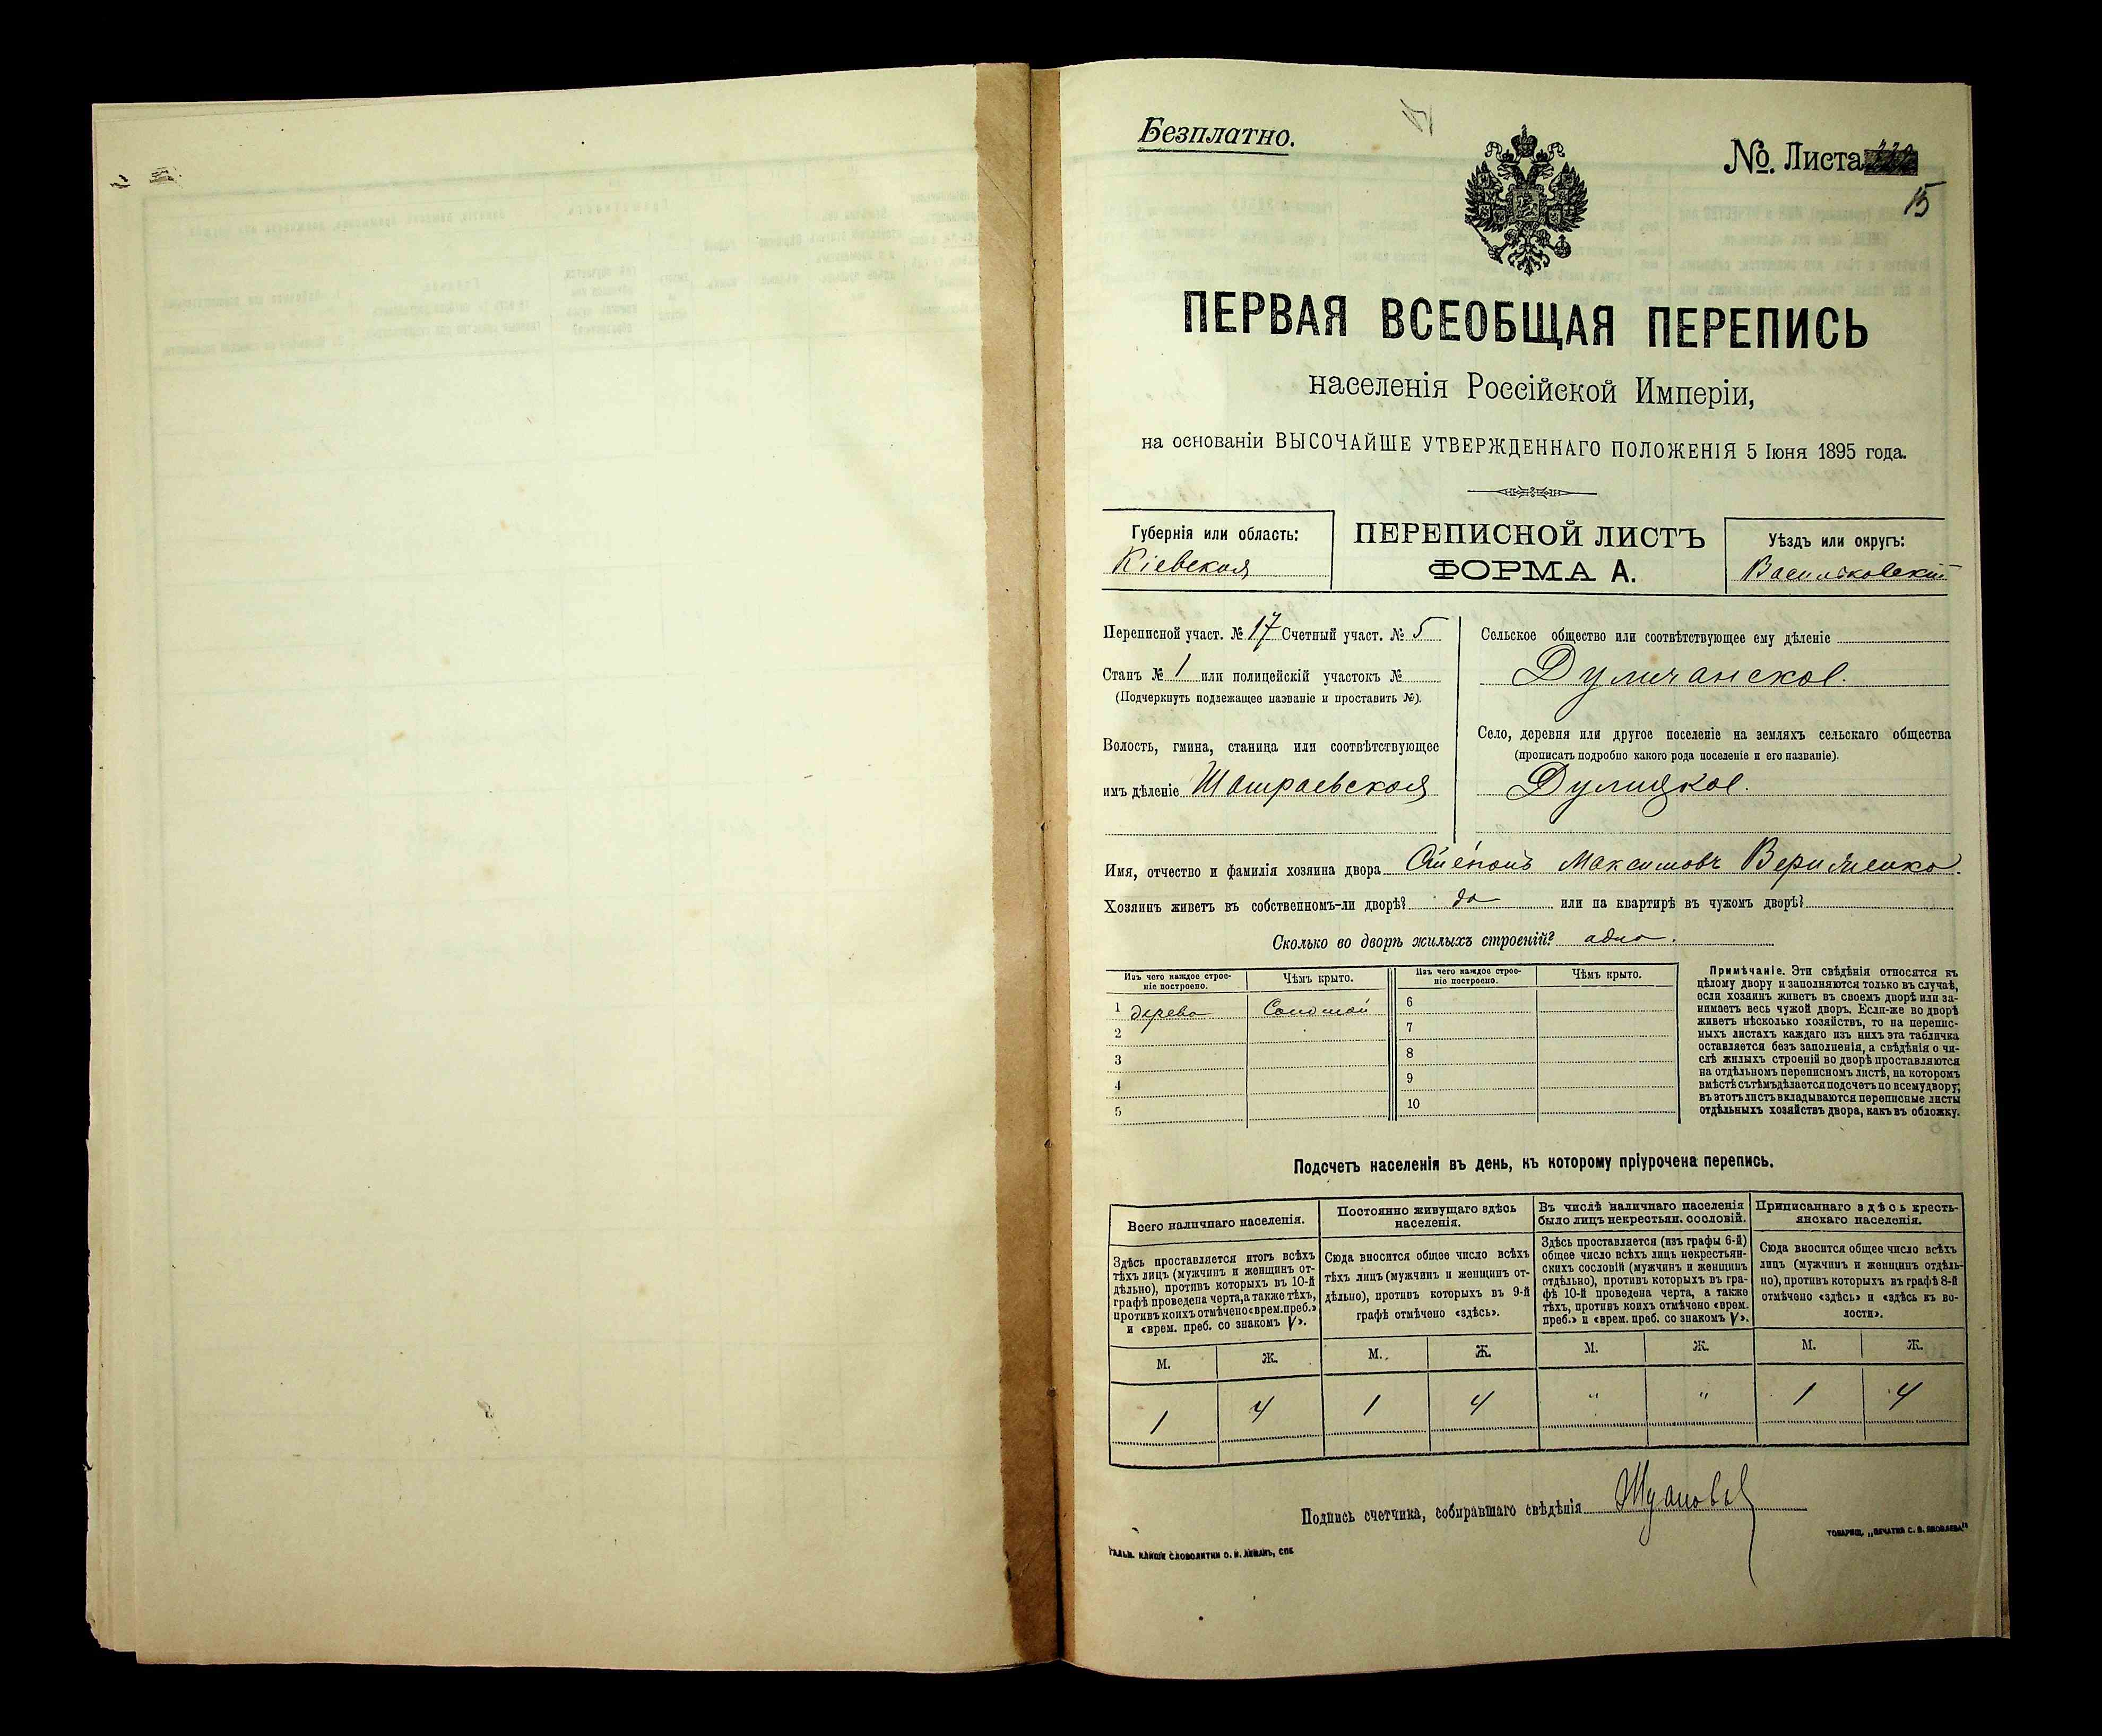 Безплатно.
№. Листа
15
ПЕРВАЯ ВСЕОБЩАЯ ПЕРЕПИСЬ
населенія Россійской Имперіи,
на основаніи ВЫСОЧАЙШЕ УТВЕРЖДЕННАГО ПОЛОЖЕНІЯ 5 Іюня 1895 года.
Губернія или область:
Кіевская
ПЕРЕПИСНОЙ ЛИСТЪ
ФОРМА А.
Уѣздъ или округъ:
Васильковскій
Переписной участ. № 17 Счетный участ. № 5
Станъ № 1 или полицейскій участокъ №
(Подчеркнуть подлежащее названіе и проставить №).
Волость, гмина, станица или соотвѣтствующее
имъ дѣленіе Шамраевская
Сельское общество или соотвѣтствующее ему дѣленіе
Дуличанское.
Село, деревня или другое поселеніе на земляхъ сельскаго общества
(прописать подробно какого рода поселеніе и его названіе).
Дулицкое.
Имя, отчество и фамилія хозяина двора Максимовъ
Хозяинъ живетъ въ собственномъ-ли дворѣ? да или на квартирѣ въ чужомъ дворѣ?
Сколько во дворѣ жилыхъ строеній? адно.
Изъ чего каждое строе-
ніе построено.
Чѣмъ крыто.
Изъ чего каждое строе-
ніе построено.
Чѣмъ крыто.
1 дерева Соломой
2
3
4
5
6
7
8
9
10
Примѣчаніе. Эти свѣдѣнія относятся къ
цѣлому двору и заполняются только въ случаѣ,
если хозяинъ живетъ въ своемъ дворѣ или за-
нимаетъ весь чужой дворъ. Если-же во дворѣ
живетъ нѣсколько хозяйствъ, то на перепис-
ныхъ листахъ каждаго изъ нихъ эта табличка
оставляется безъ заполненія, а свѣдѣнія о чи-
слѣ жилыхъ строеній во дворѣ проставляются
на отдѣльномъ переписномъ листѣ, на которомъ
вмѣстѣ съ тѣмъ дѣлается подсчетъ по всему двору;
въ этотъ листъ вкладываются переписные листы
отдѣльныхъ хозяйствъ двора, какъ въ обложку.
Подсчетъ населенія въ день, къ которому пріурочена перепись.
Всего наличнаго населенія.
Здѣсь проставляется итогъ всѣхъ
тѣхъ лицъ (мужчинъ и женщинъ от-
дѣльно), противъ которыхъ въ 10-й
графѣ проведена черта, а также тѣхъ,
противъ коихъ отмѣчено «врем. преб.»
и «врем. преб. со знакомъ V».
Постоянно живущаго здѣсь
населенія.
Сюда вносится общее число всѣхъ
тѣхъ лицъ (мужчинъ и женщинъ от-
дѣльно), противъ которыхъ въ 9-й
графѣ отмѣчено «здѣсь».
Въ числѣ наличнаго населенія
было лицъ некрестьян. сословій.
Здѣсь проставляется (изъ графы 6-й)
общее число всѣхъ лицъ некрестьян-
скихъ сословій (мужчинъ и женщинъ
отдѣльно), противъ которыхъ въ гра-
фѣ 10-й проведена черта, а также
тѣхъ, противъ коихъ отмѣчено «врем.
преб.» и «врем. преб. со знакомъ V».
Приписаннаго здѣсь кресть-
янскаго населенія.
Сюда вносится общее число всѣхъ
лицъ (мужчинъ и женщинъ отдѣль-
но), противъ которыхъ въ графѣ 8-й
отмѣчено «здѣсь» и «здѣсь къ во-
лости».
М. Ж. М. Ж. М. Ж. М. Ж.
1 4 1 4 " " 1 4
Подпись счетчика, собиравшаго свѣдѣнія
ГАЛЬВ. КЛИШЕ СЛОВОЛИТНИ О. И. ЛЕМАНЪ, СПБ
ТОВАРИЩ. „ПЕЧАТНЯ С. П. ЯКОВЛЕВА"